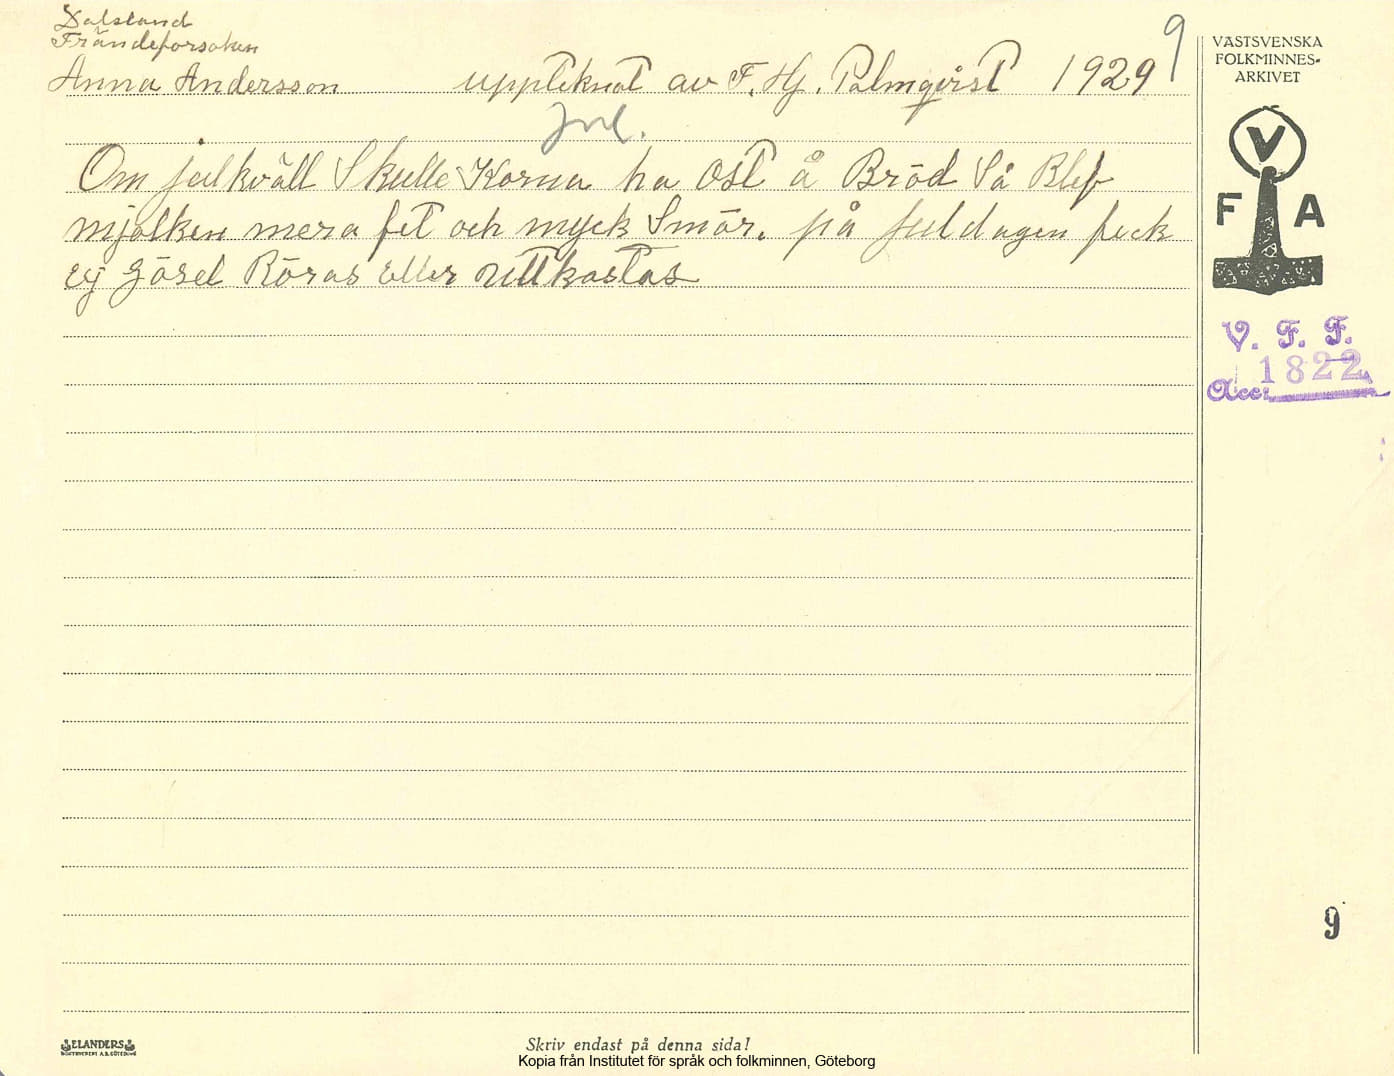 Dalsland
Frändeforsoken
Anna Andersson uppteknat av F. Hj. Palmqvist 1929
9
Jul.
Om julkväll Skulle Korna ha Ost å Bröd Så Blef
mjölken mera fet och myck Smör. på Juldagen feck
ej Gösel Röras eller uttkastas
VÄSTSVENSKA
FOLKMINNES-
ARKIVET
V
F A
V. F. F.
Acc: 1822
9
ELANDERS
Skriv endast på denna sida!
Kopia från Institutet för språk och folkminnen, Göteborg